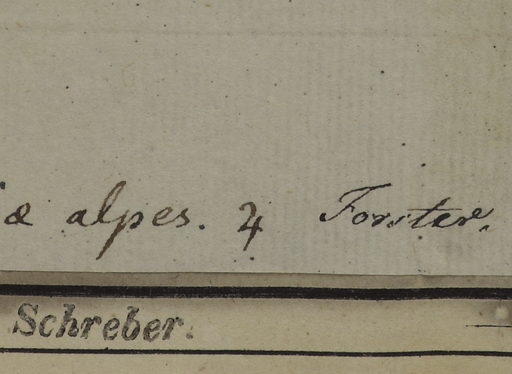 æ alpes. ♃ Forster.
Schreber.